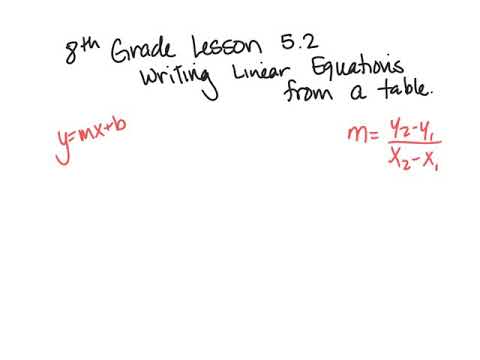 8th Grade Lesson 5.2
Writing Linear Equations
from a table.
y=mx+b
m= y₂-y₁
x₂-x₁